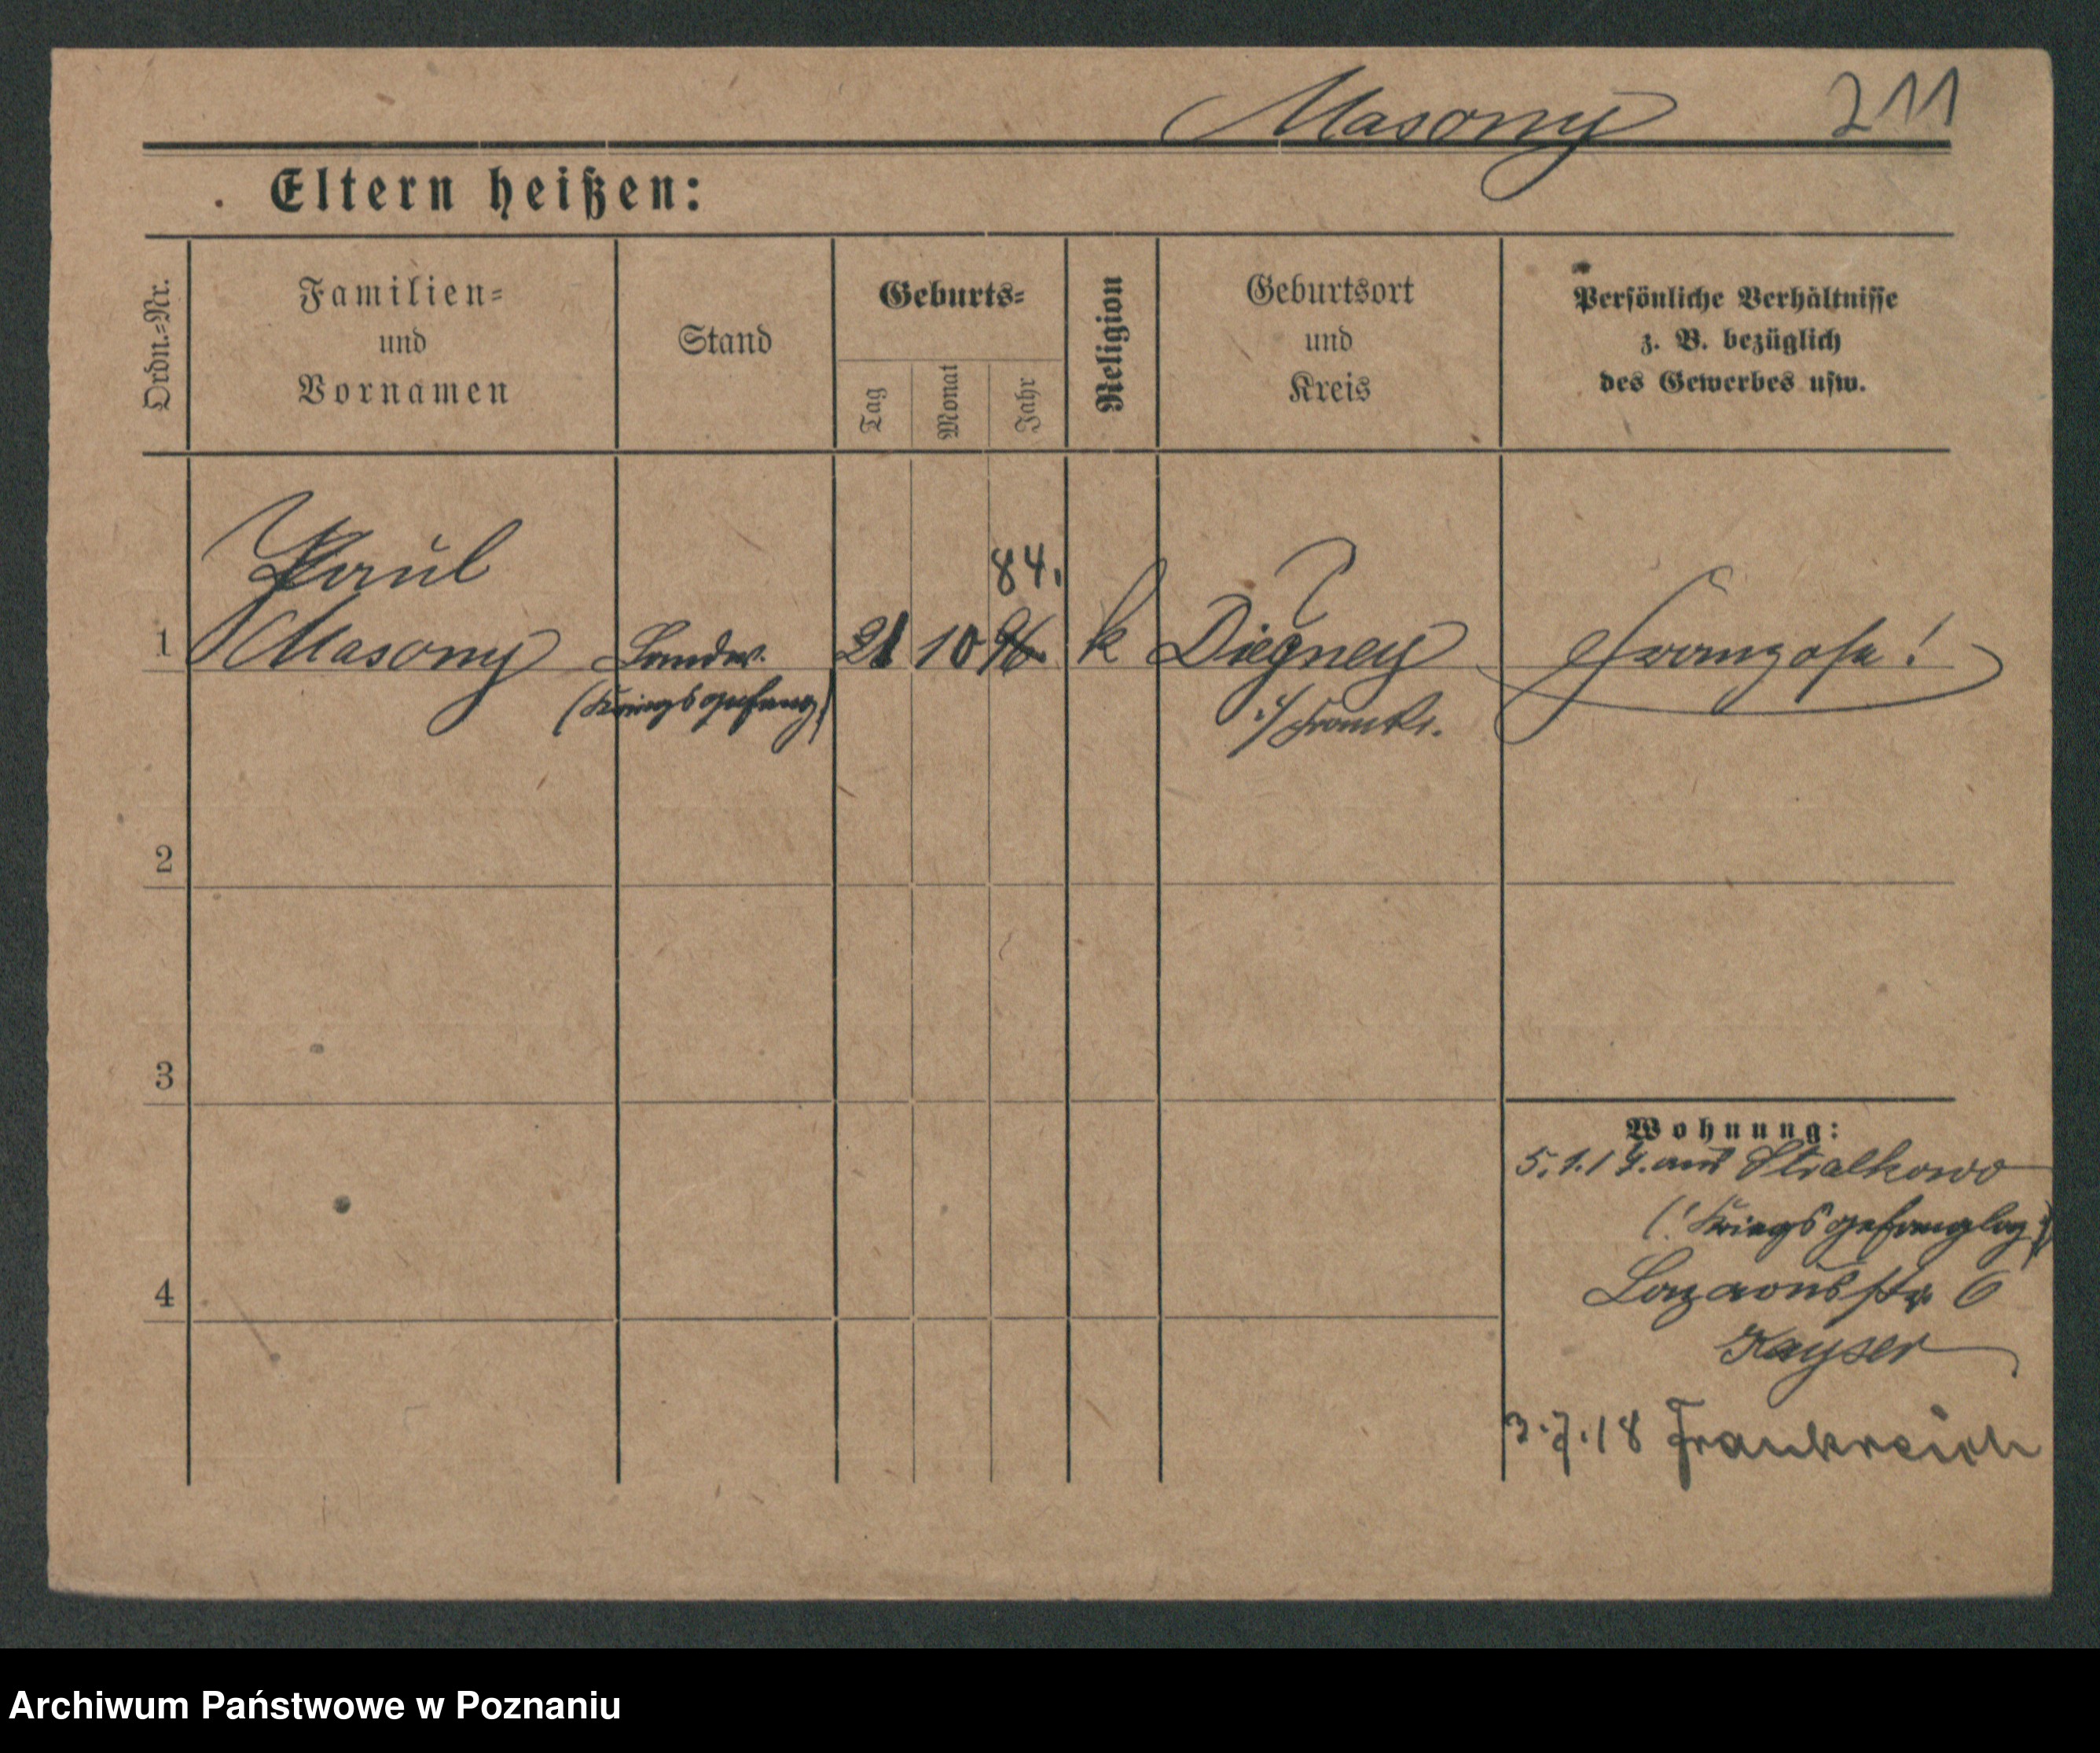 Masony 211
Eltern heißen:
Ordn.-Nr.
Familien-
und
Vornamen
Stand
Geburts-
Tag
Monat
Jahr
Religion
Geburtsort
und
Kreis
Persönliche Verhältnisse
z. B. bezüglich
des Gewerbes usw.
Paul
84.
1 Masony Landw. 21 10 k Diegney Franzose!
(Kriegsgefang)
i/Frankr.
2
3
4
Wohnung:
5.1.17. aus Stralkowo
(Kriegsgefanglag)
Lazarusstr 6
Kayser
3.7.18 Frankreich
Archiwum Państwowe w Poznaniu